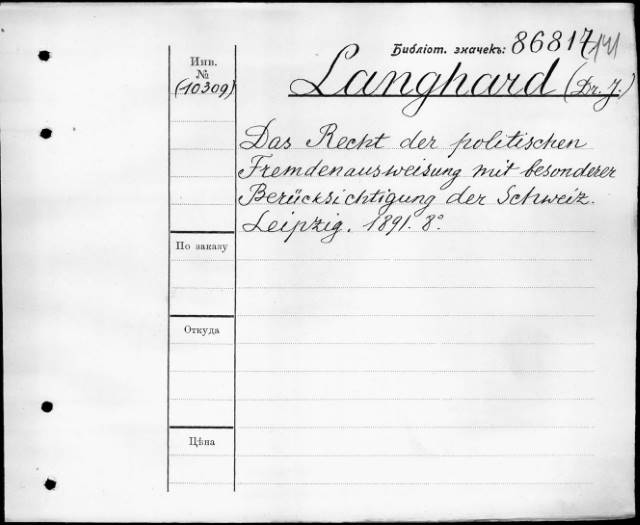 Библіот. значекъ: 86817/141
Инв.
№
(10309)
Langhard (Dr. J.)
Das Recht der politischen
Fremdenausweisung mit besonderer
Berücksichtigung der Schweiz.
Leipzig. 1891. 8°
По заказу
Откуда
Цѣна